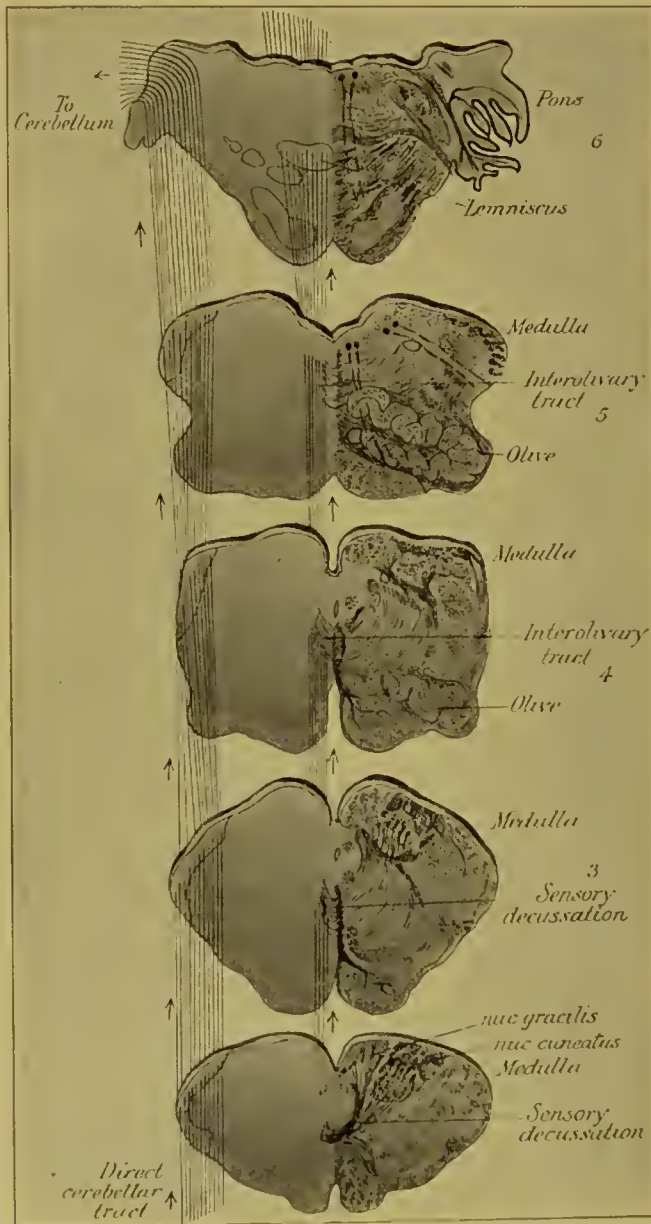 To
Cerebellum
Pons
6
Lemniscus
Medulla
Interolivary
tract
5
Olive
Medulla
Interolivary
tract
4
Olive
Medulla
3
Sensory
decussation
nuc gracilis
nuc cuneatus
Medulla
Sensory
decussation
Direct
cerebellar
tract